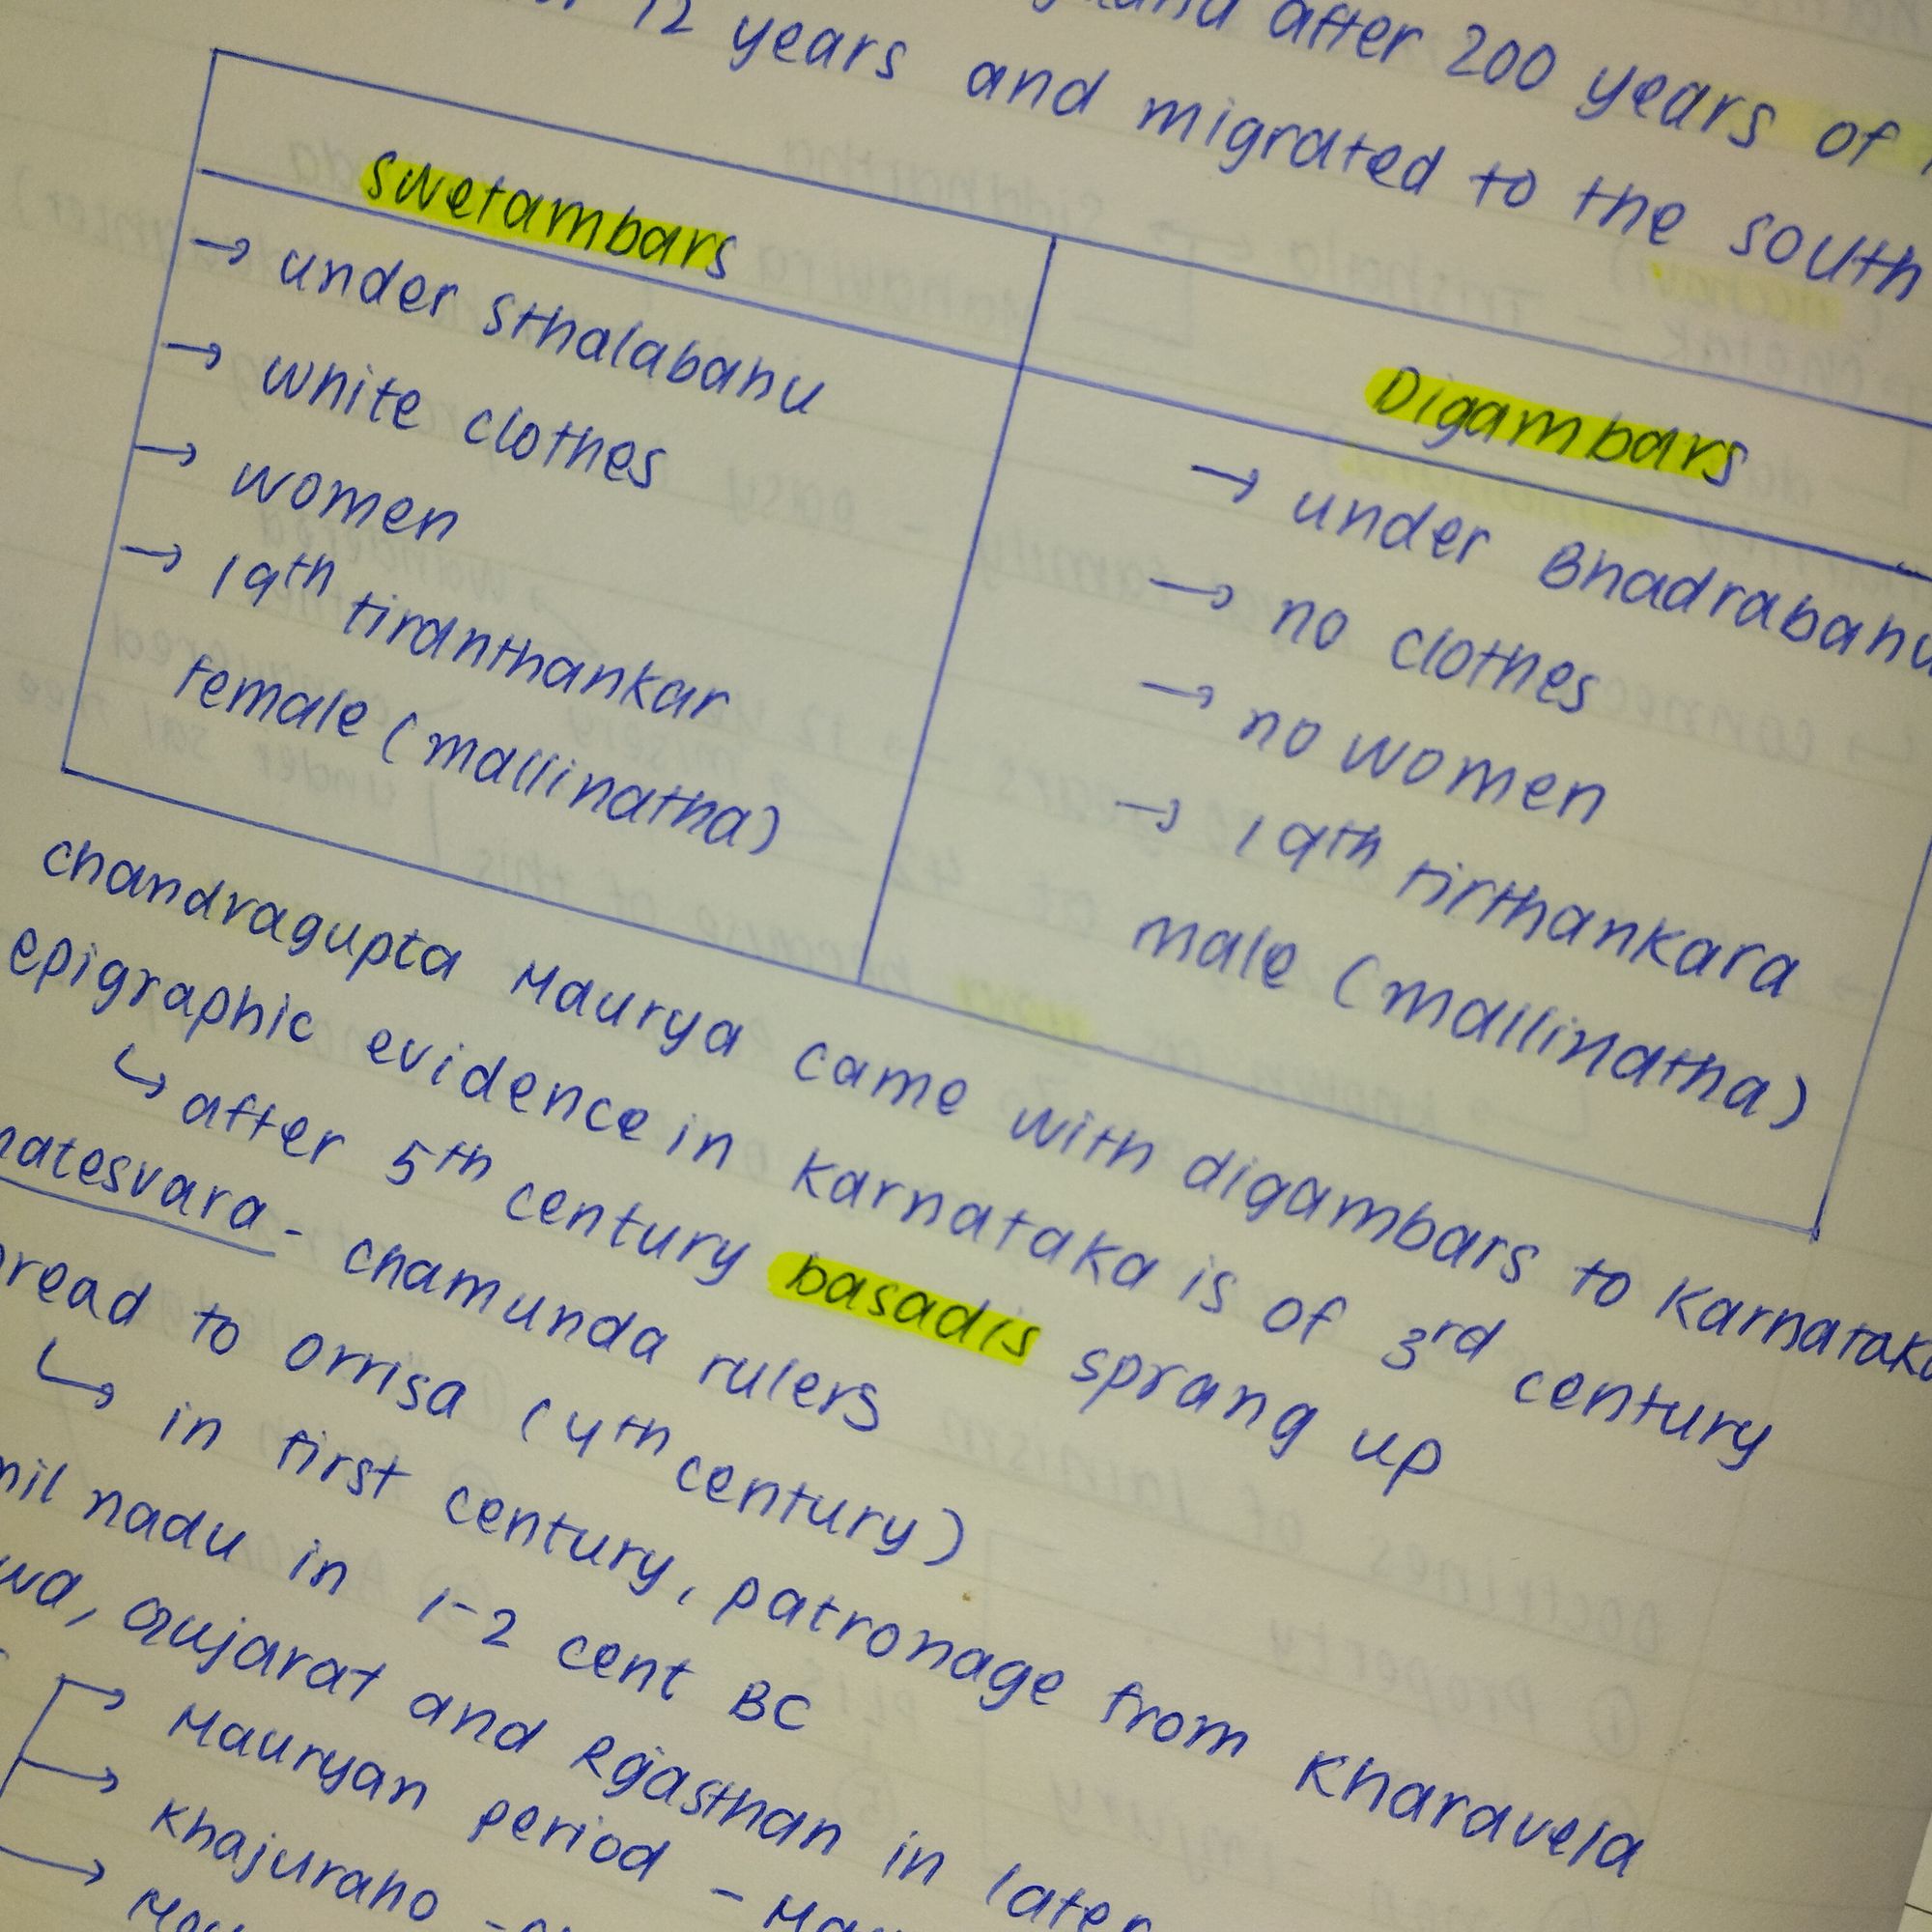 after 200 years of
12 years and migrated to the south
swetambars
→ under sthalabahu
→ white clothes
→ women
→ 19th tiranthankar
female (mallinatha)
Digambars
→ under Bhadrabahu
→ no clothes
→ no women
→ 19th tirthankara
male (mallinatha)
chandragupta Maurya came with digambars to Karnataka
epigraphic evidence in Karnataka is of 3rd century
↳ after 5th century basadis sprang up
matesvara - chamunda rulers
pread to orrisa (4th century)
↳ in first century, patronage from Kharavela
mil nadu in 1-2 cent BC
wa, Gujarat and Rgasthan in later
→ Mauryan period -
→ Khajuraho -
→